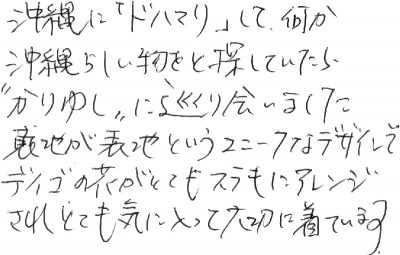 沖縄に「ドハマリ」して、何か
沖縄らしい物をと探していたら
"かりゆし"に巡り会いました
裏地が表地というユニークなデザインで
デイゴの花がとてもステキにアレンジ
されとても気に入って大切に着ています